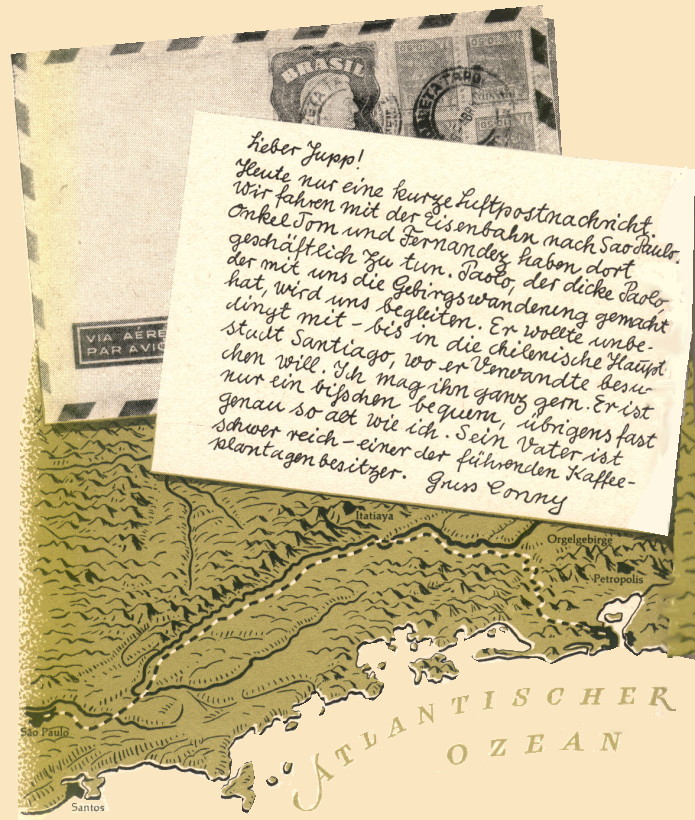 BRASIL
Lieber Jupp!
Heute nur eine kurze Luftpostnachricht.
Wir fahren mit der Eisenbahn nach Sao Paulo.
Onkel Tom und Fernandez haben dort
geschäftlich zu tun. Paolo, der dicke Paolo,
der mit uns die Gebirgswanderung gemacht
hat, wird uns begleiten. Er wollte unbe-
dingt mit – bis in die chilenische Haupt
stadt Santiago, wo er Verwandte besu-
chen will. Ich mag ihn ganz gern. Er ist
nur ein bißchen bequem, übrigens fast
genau so alt wie ich. Sein Vater ist
schwer reich – einer der führenden Kaffee-
plantagenbesitzer. Gruss Conny
VIA AÉRE
PAR AVIO
Itatiaya
Orgelgebirge
Petropolis
São Paulo
Santos
ATLANTISCHER
OZEAN